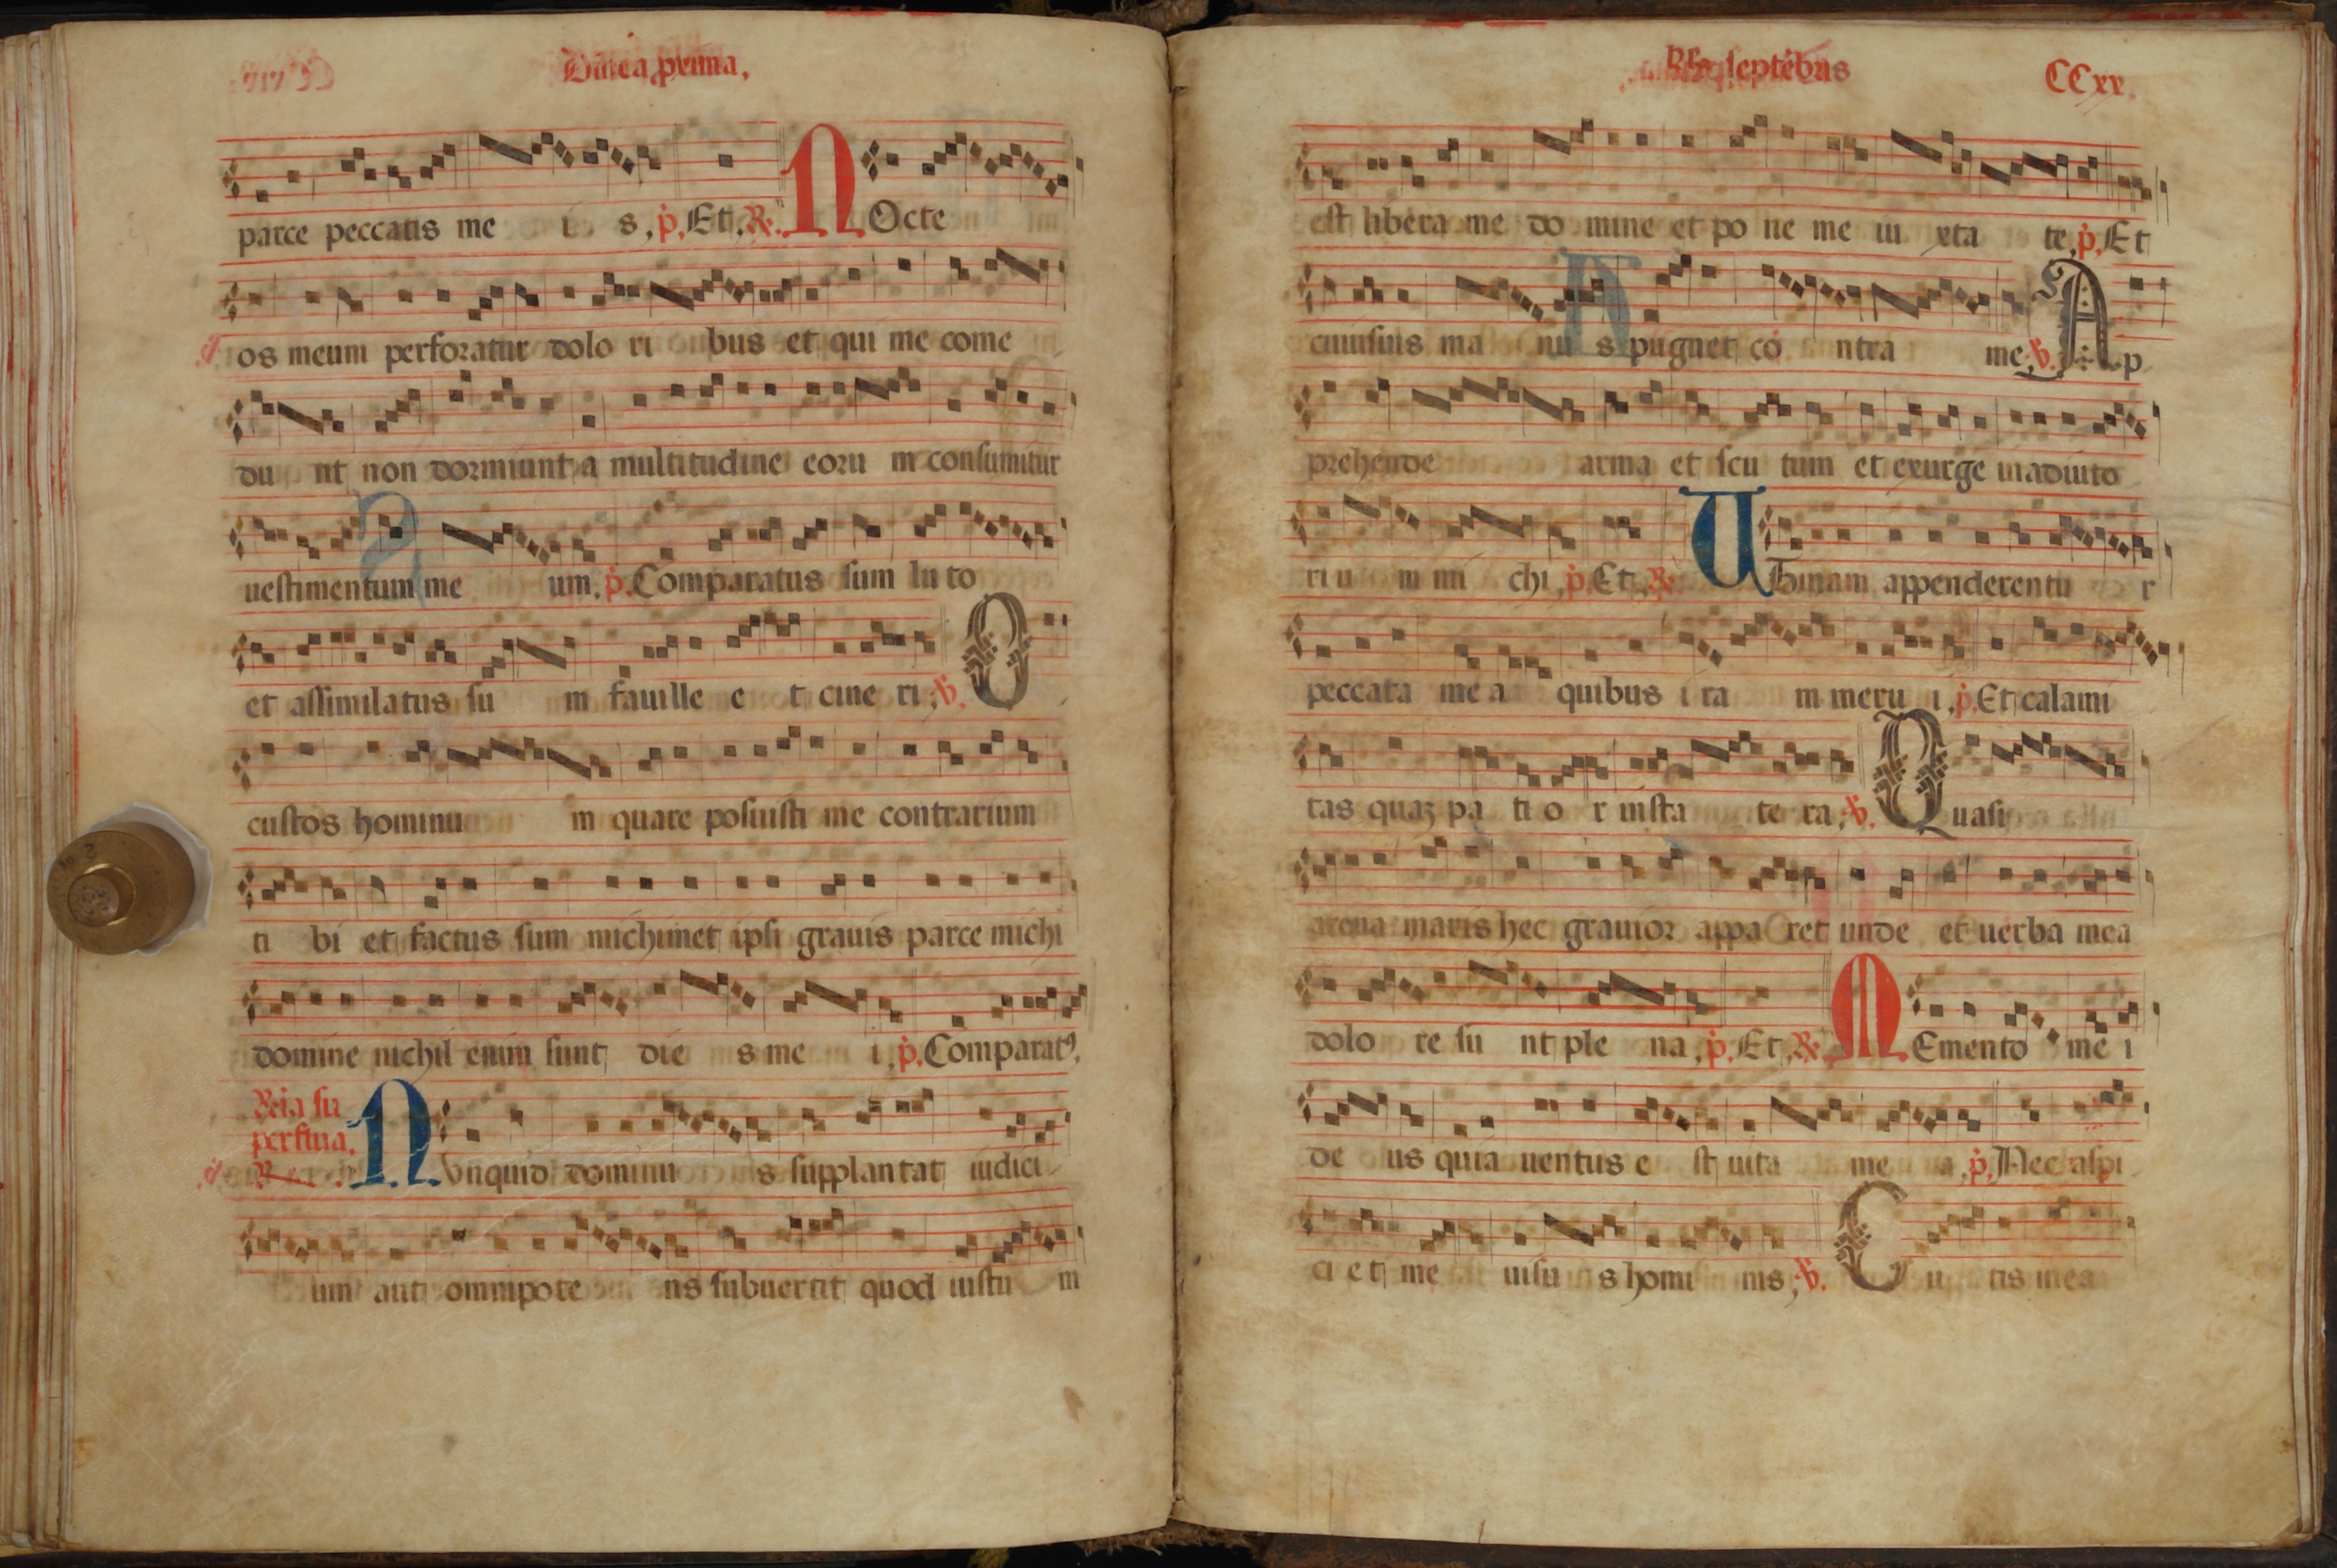 Dn̄ica prima.
parce peccatis me i s, p̄. Et. R. NOcte
os meum perforatur dolo ri bus et qui me come
du nt non dormiunt a multitudine eoru m consumitur
uestimentum me um. p̄. Comparatus sum lu to
et assimilatus su m fauille e t cine ri. V. O
custos hominu m quare posuisti me contrarium
ti bi et factus sum michimet ipsi grauis parce michi
domine nichil enim sunt die s me i, p̄. Comparatꝰ.
NVnquid dominu s supplantat iudici
um aut omnipote ns subuertit quod iustu m
septēbris CCxx.
est libera me do mine et po ne me iu xta te, p̄. Et
cuiusuis ma nu s pugnet cō ntra me. V. Ap
prehende arma et scu tum et exurge inadiuto
ri u m mi chi, p̄. Et. R. UTinam appenderentu r
peccata me a quibus i ra m meru i, p̄. Et calami
tas quaꝫ pa ti o r insta te ra. V. Quasi
arena maris hec grauior appa ret unde et uerba mea
dolo re su nt ple na, p̄. Et. R. MEmento me i
de us quia uentus e st uita me a, p̄. Nec aspi
ci et me uisu s homi nis, V. Cu tis mea